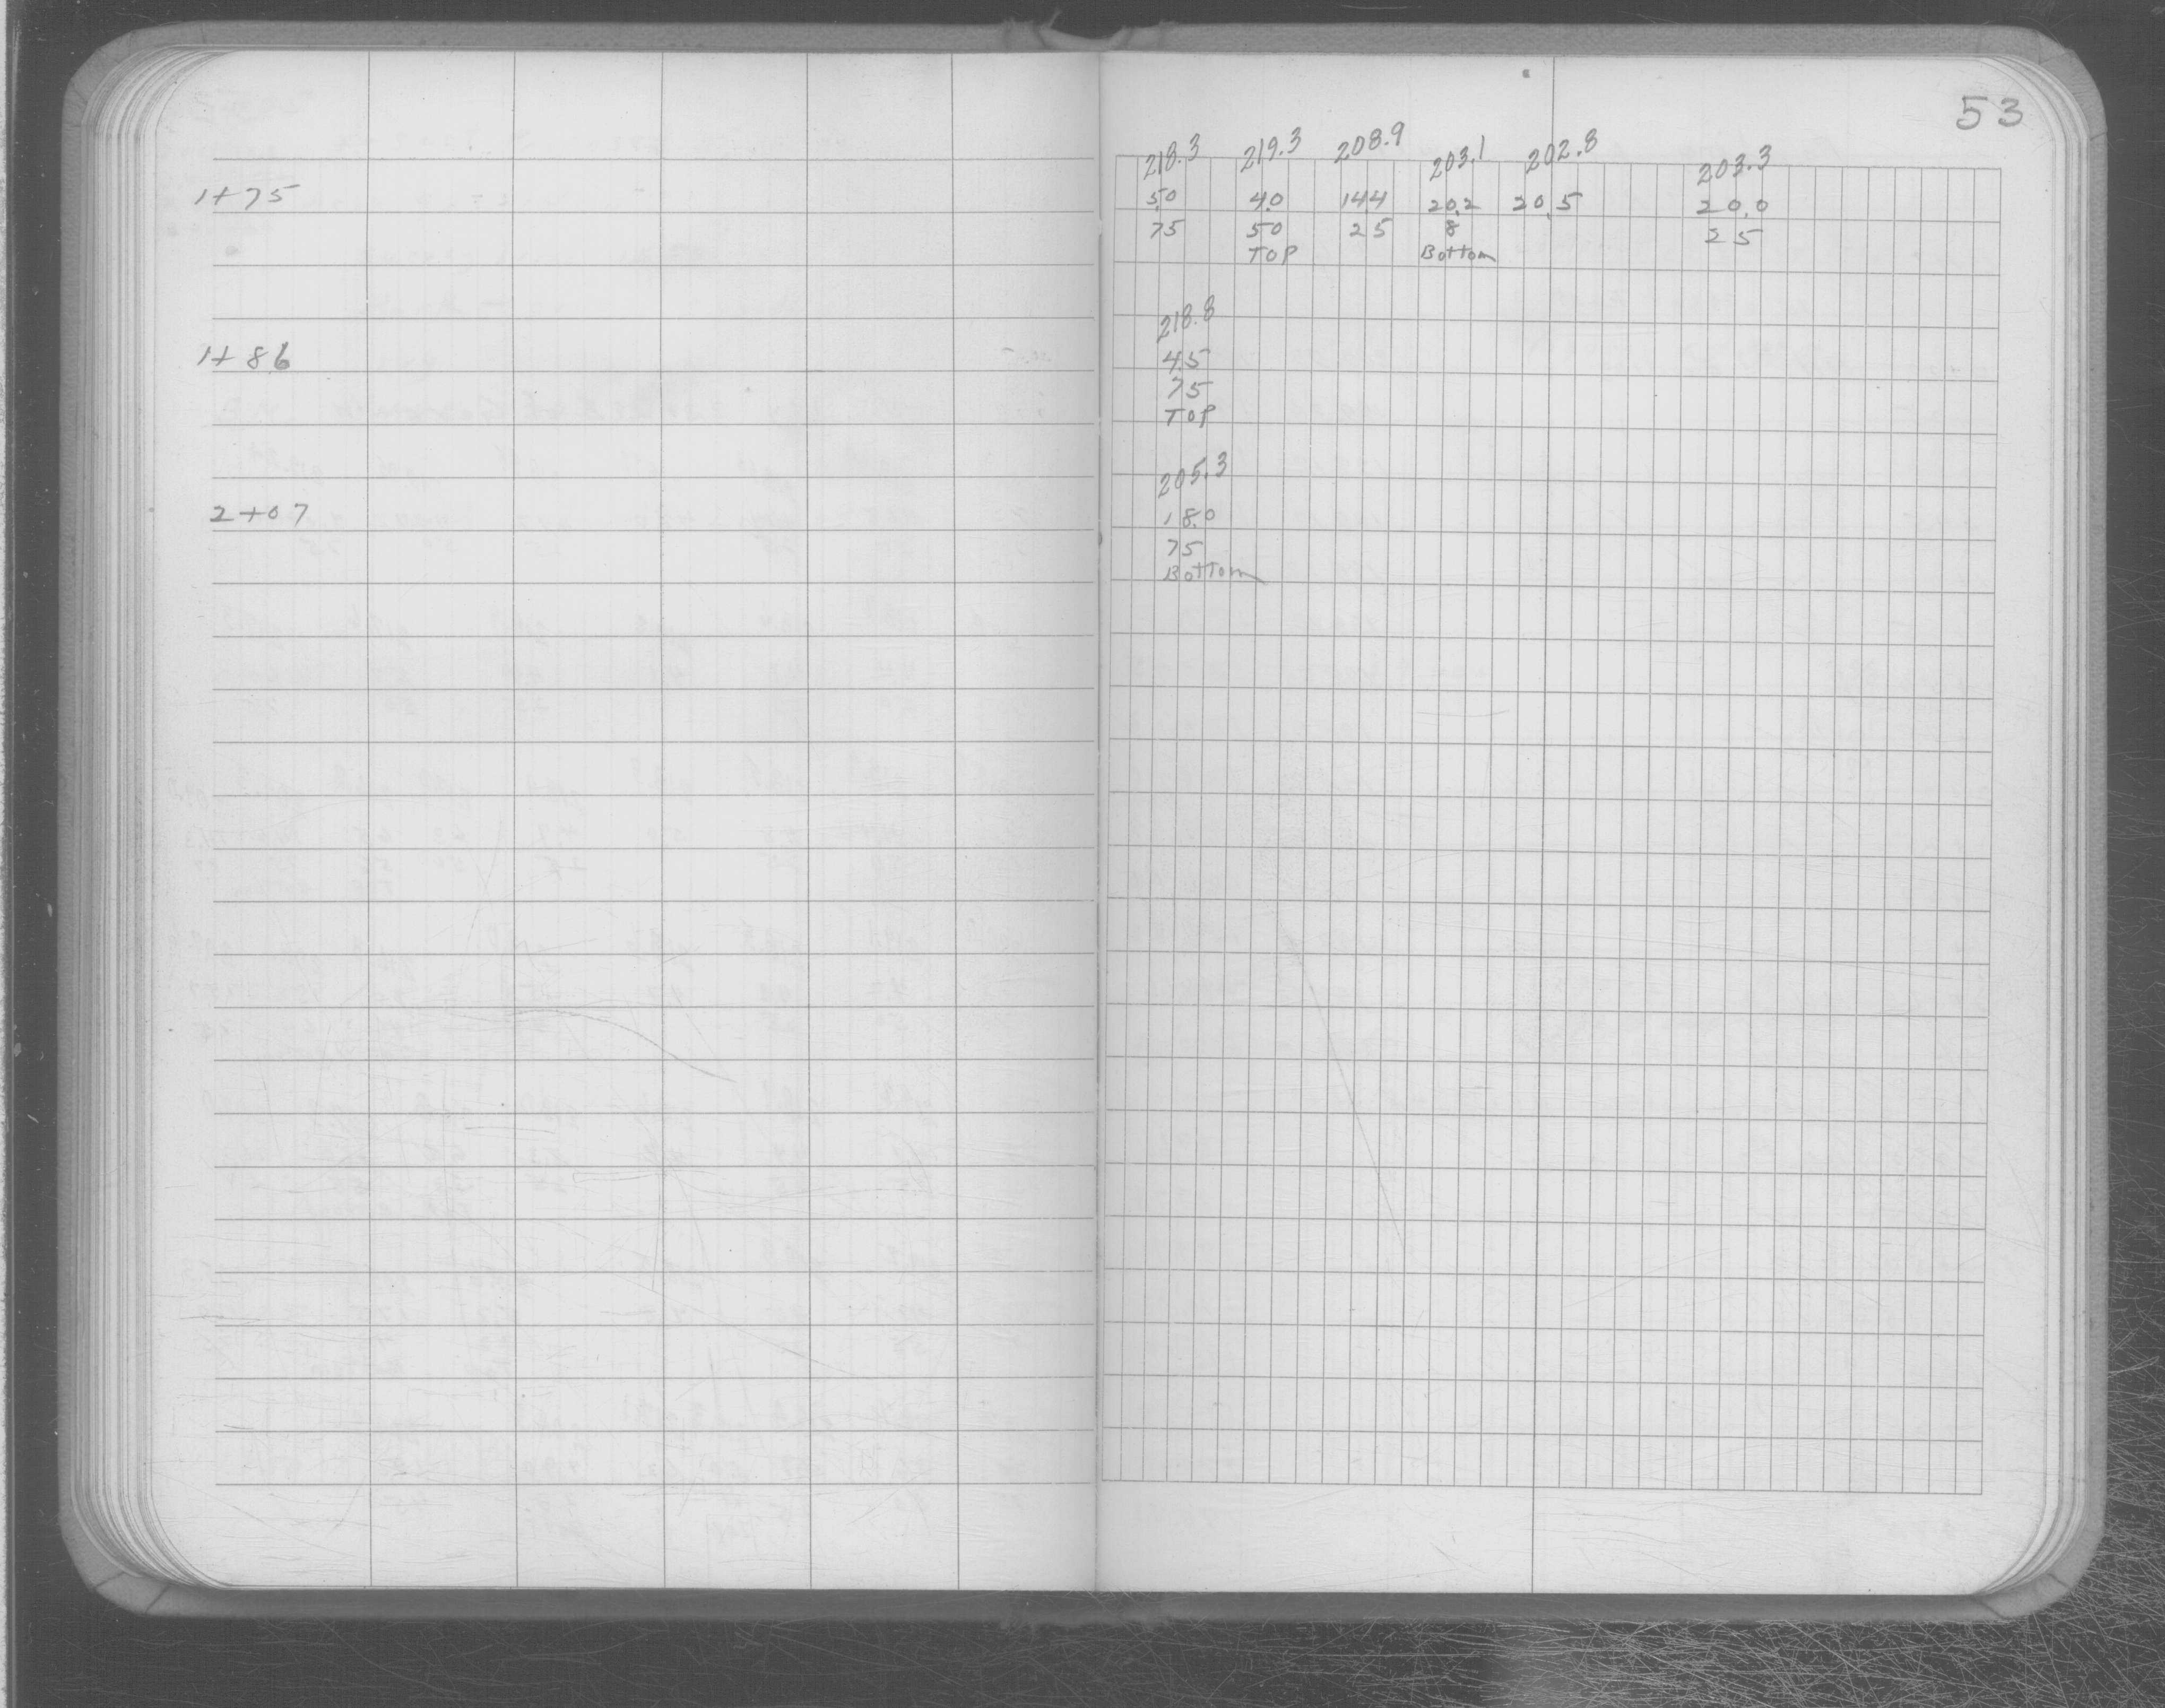 53
218.3 219.3 208.9 203.1 202.8 203.3
1+75 5.0 4.0 14.4 20.2 20.5 20.0
75 50 25 8 25
TOP Bottom
218.8
1+86 4.5
75
TOP
205.3
2+07 18.0
75
Bottom